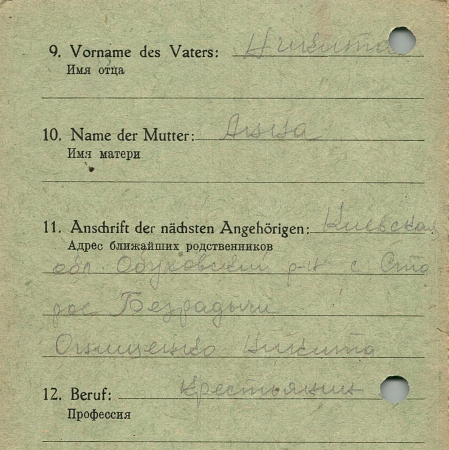 9. Vorname des Vaters: Никита
Имя отца
10. Name der Mutter: Анна
Имя матери
11. Anschrift der nächsten Angehörigen: Киевская
Адрес ближайших родственников
обл. Обуховский р-н с. Ста
рое Безрадычи
Онищенко Никита
12. Beruf: крестьянин
Профессия